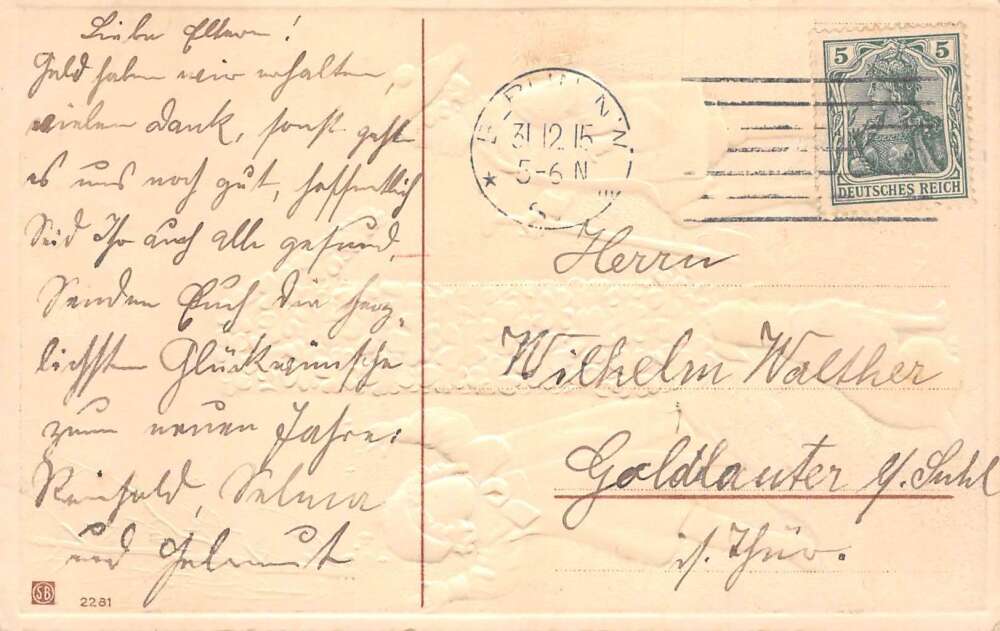 Liebe Eltern!
Geld haben wir erhalten,
vielen Dank, sonst geht
es uns noch gut, hoffentlich
Seid Ihr auch alle gesund,
Senden Euch die herz-
lichsten Glückwünsche
zum neuen Jahre.
Reinhold, Selma
und Helmut
SB
2281
BERLIN N.
31.12.15
5-6 N
2
5 5
DEUTSCHES REICH
Herrn
Wilhelm Walther
Goldlauter b/. Suhl
i/. Thür.